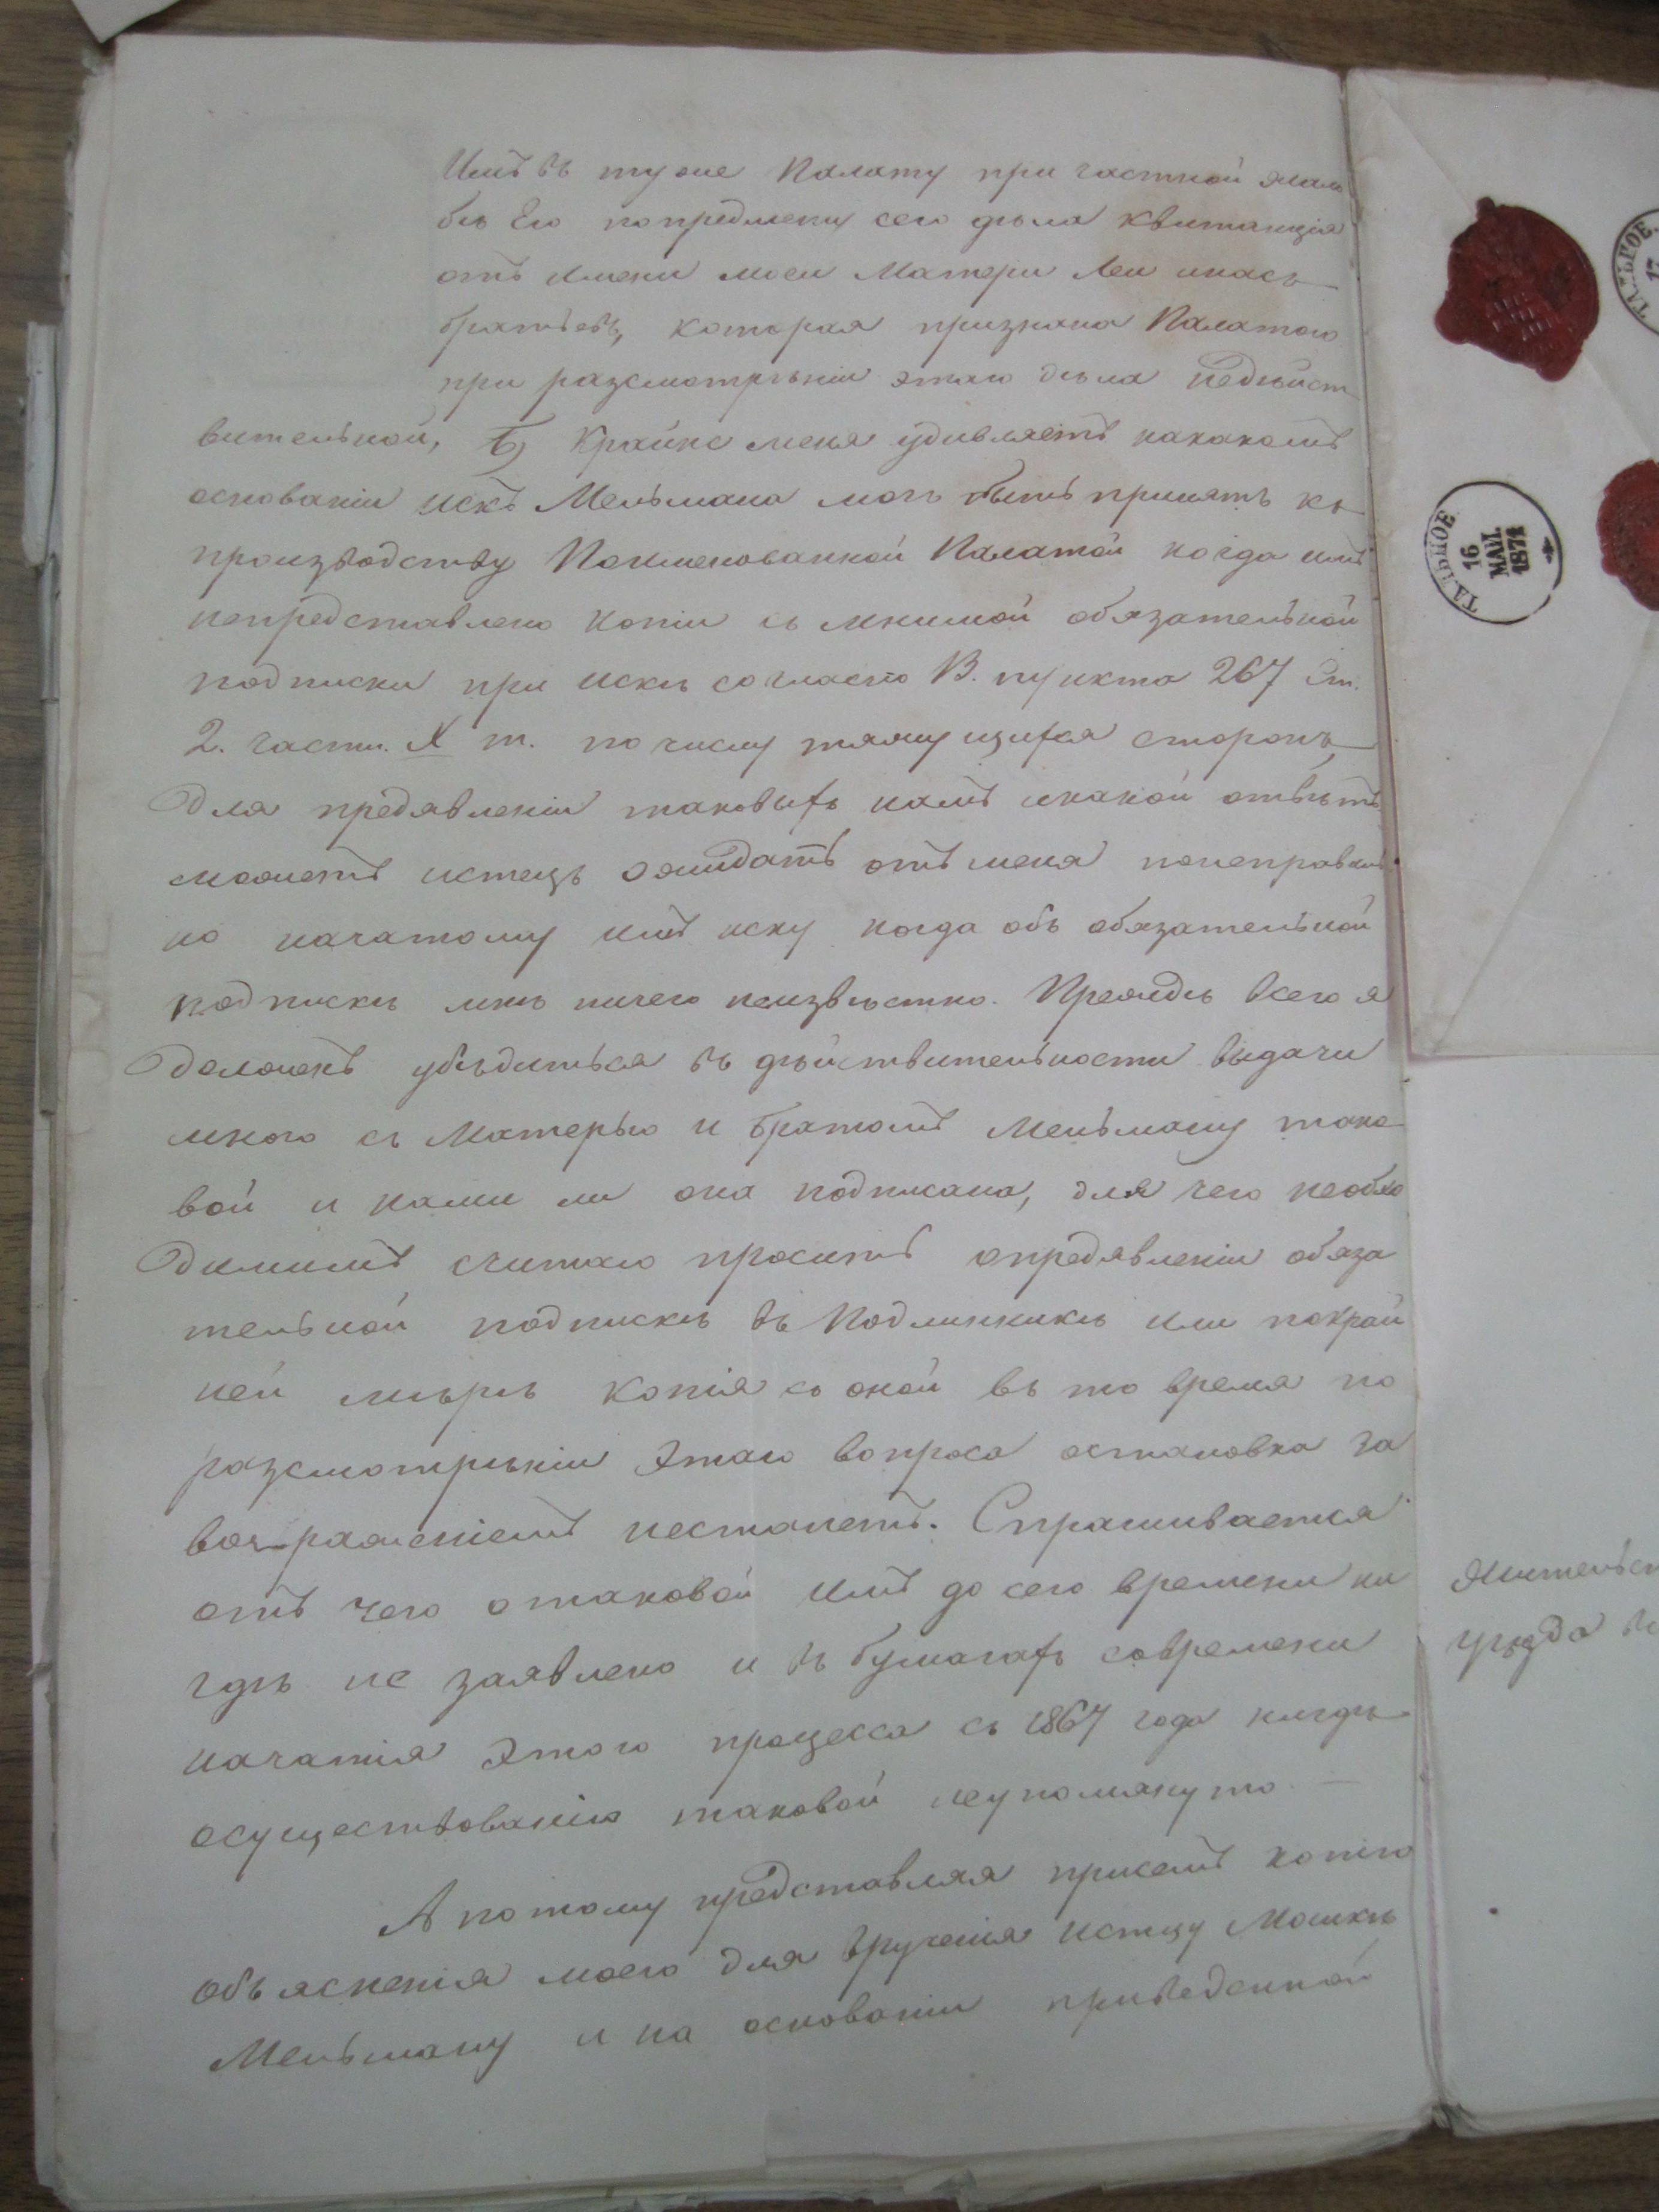 Имъ въ туже Палату при частной жало
бѣ Его попредмету сего дѣла квитанція
отъ имени моей Матери Леи инасъ
братьевъ, которая признана Палатою
при разсмотрѣніи этаго дѣла недѣйст
вительной, Б) Крайне меня удивляетъ накакомъ
основаніи искъ Мельмана могъ быть принятъ къ
производству Поименованной Палатой когда имъ
непредставлено копіи съ мнимой обязательной
подписки при искѣ согласно В. пункта 267 Ст.
2. части. X т. по числу тяжущихся сторонъ
для предявленіи таковыхъ намъ икакой отвѣтъ
можетъ истецъ ожидать отъ меня понеправиль
но начатому имъ иску когда объ обязательной
подпискѣ мнѣ ничего неизвѣстно. Преждѣ всего я
долженъ убѣдиться въ дѣйствительности выдачи
мною съ Матерью и братомъ Мельману тако
вой и нами ли она подписана, для чего необхо
димымъ считаю просить опредявленіи обяза
тельной подпискѣ въ Подлинникѣ или покрай
ней мѣрѣ копія со оной въ то время по
разсмотрѣніи этаго вопроса остановка за
возраженіемъ нестанетъ. Спрашивается
отъ чего о таковой имъ до сего времени ни
гдѣ не заявлено и въ бумагахъ современи
начатія этого процесса съ 1867 года нигдѣ
осуществованію таковой неупомянуто —
А потому представляя присемъ копію
объясненія моего для врученія истцу Мошкѣ
Мельману и на основаніи приведенной
ТАЛЬНОЕ
16
МАЙ.
1871
ТАЛЬНОЕ.
17
Жительст
уѣзда въ